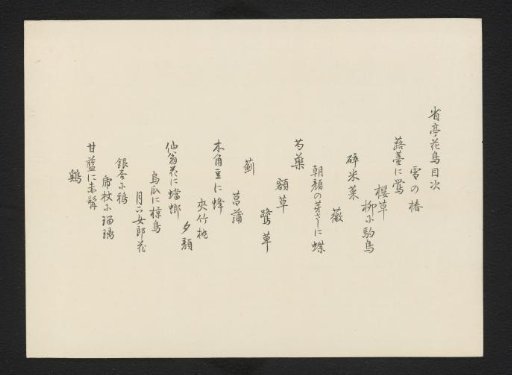 省亭花鳥目次
雪の椿
蕗薹に鶯
櫻草
柳に駒鳥
碎米菜
薇
朝顔の芽ざしに蝶
芍藥
額草
鷺草
薊
菖蒲
木角豆に蜂
夾竹桃
仙翁花に蟷螂
夕顔
烏瓜に椋鳥
月に女郎花
銀杏に鵯
虎杖に瑠璃
甘藍に赤髯
鷄